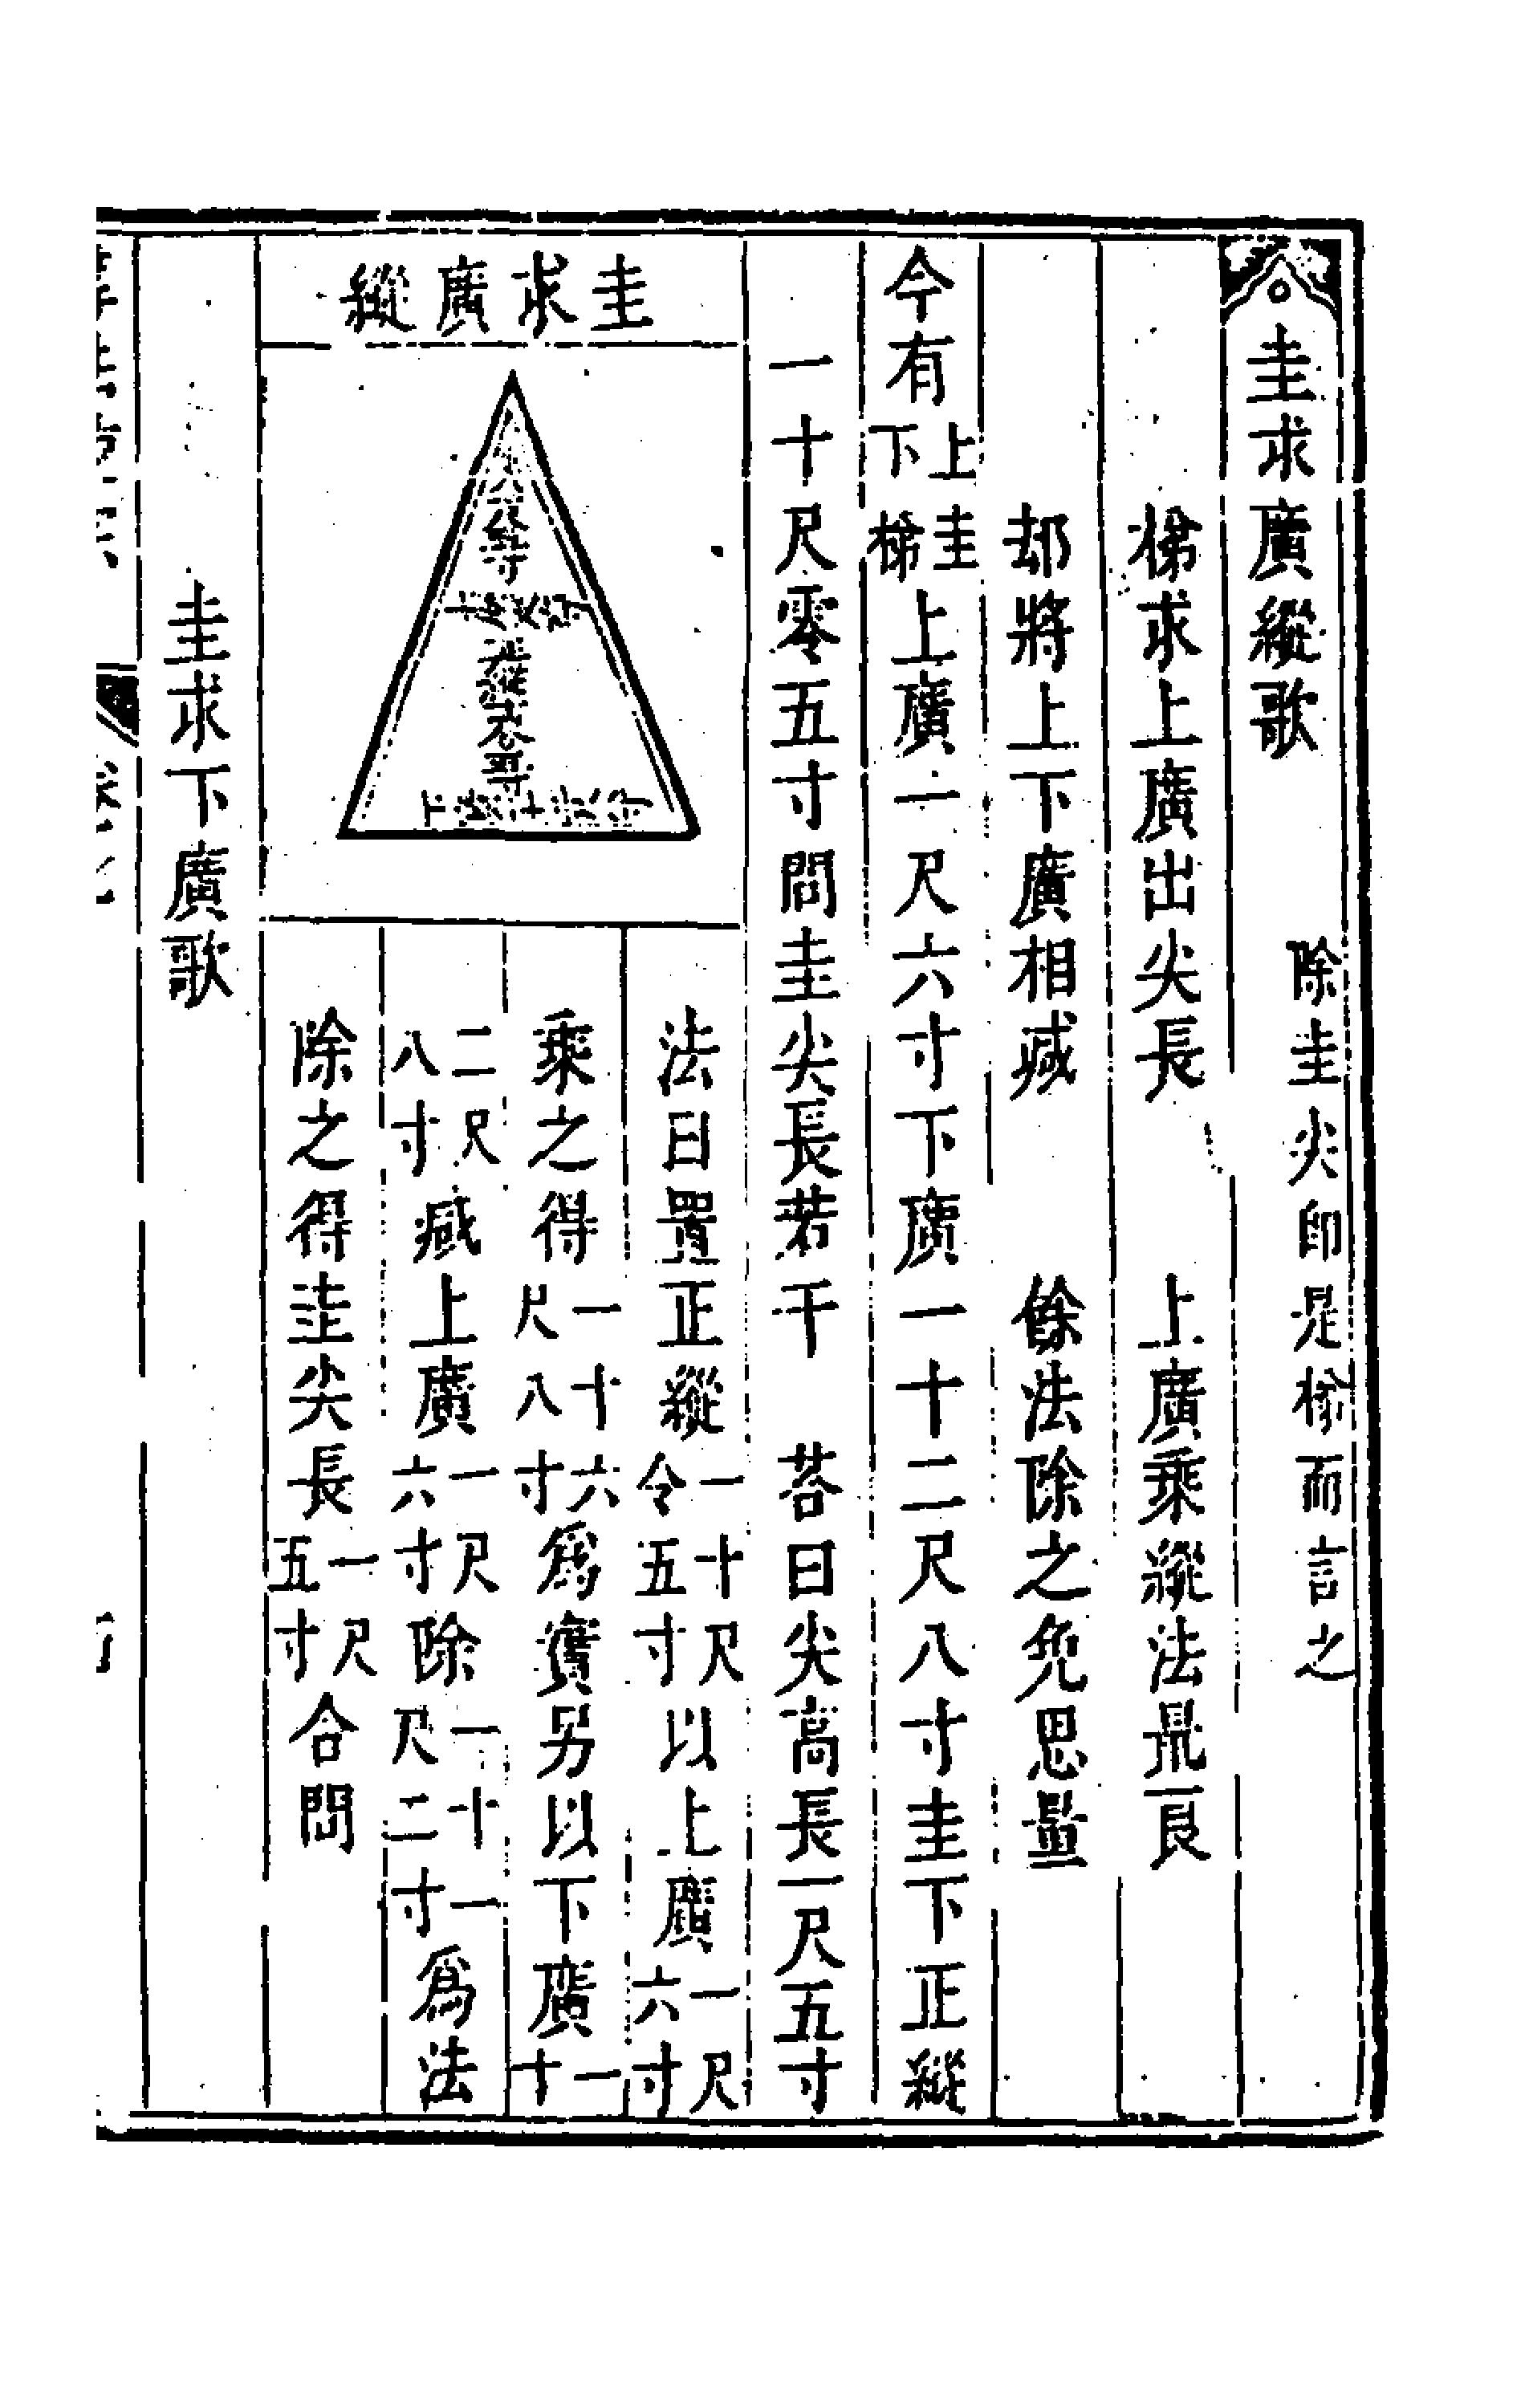 圭求廣縱歌　除圭尖卽是梯而言之
梯求上廣出尖長　上廣乘縱法最良
却將上下廣相减　餘法除之免思量
今有上圭下梯上廣一尺六寸下廣一十二尺八寸圭下正縱
一十尺零五寸問圭尖長若干　荅曰尖高長一尺五寸
圭求廣縱
法曰置正縱一十尺令五寸以上廣一尺六寸
乘之得一十六尺八寸爲實另以下廣一十
二尺八寸减上廣一尺六寸除一十一尺二寸爲法
除之得圭尖長一尺五寸合問
圭求下廣歌